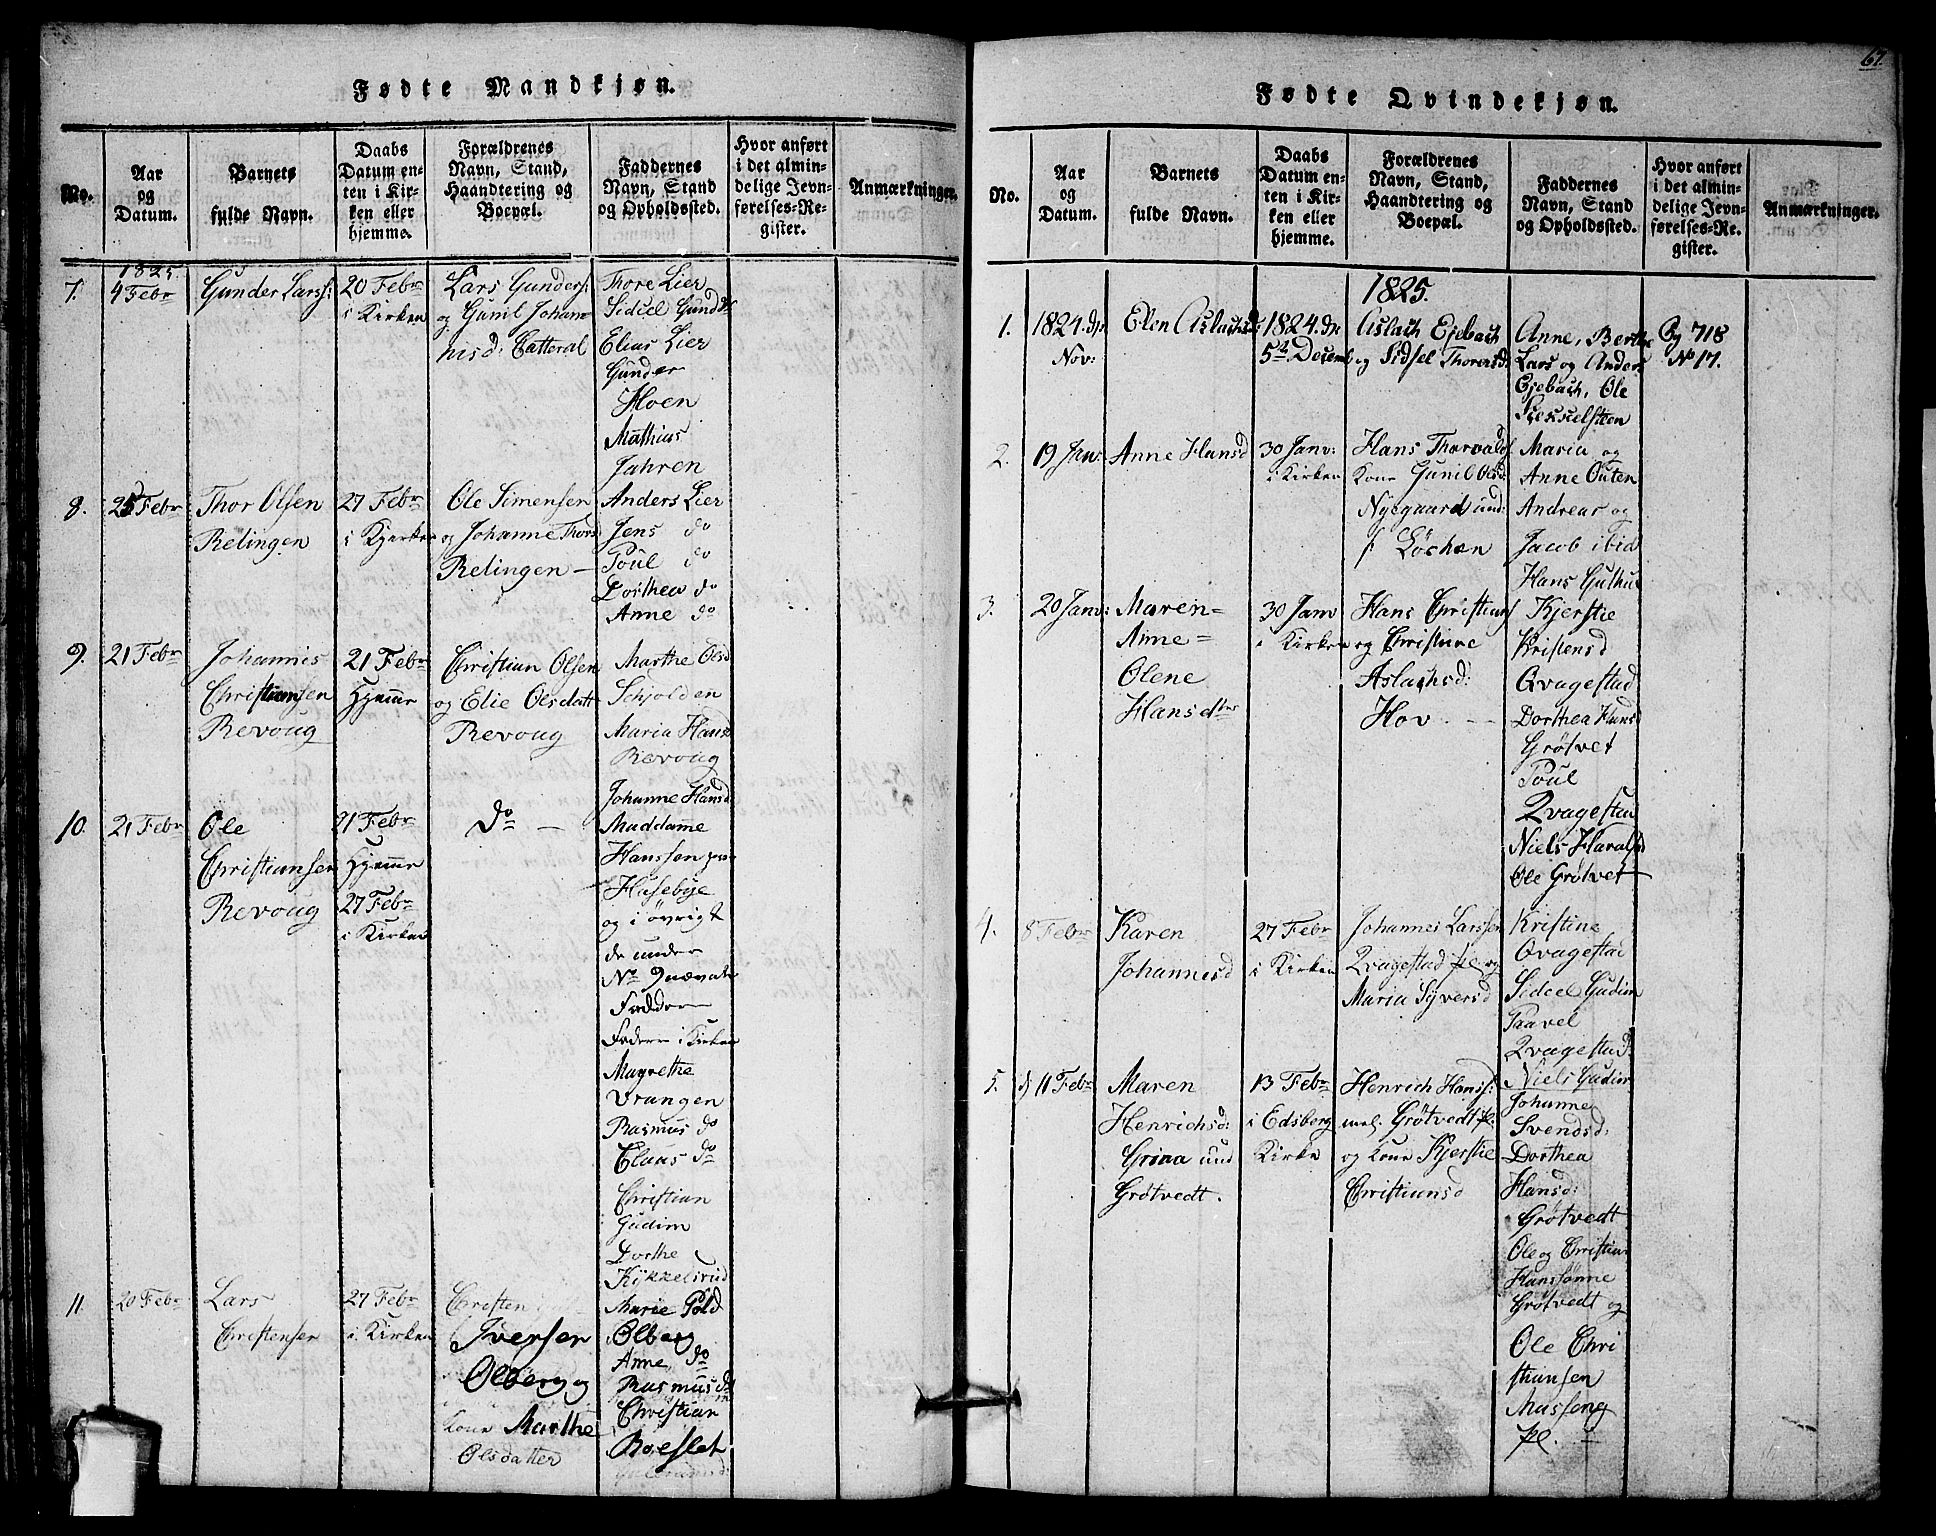 67.
Fødte Mandkjøn.
No.
Aar
og
Datum.
Barnets
fulde Navn.
Daabs
Datum en-
ten i Kir-
ken eller
hjemme.
Forældrenes
Navn, Stand,
Haandtering og
Boepæl.
Faddernes
Navn, Stand
og Opholdssted.
Hvor anført
i det almin-
delige Jevn-
førelses-Re-
gister.
Anmærkninger.
7.
1825.
4 Febr
Gunder Larss:
20 Febr
i Kirken
Lars Gunders:
og Gunil Johan
nisd: Catteral
Thore Lier
Sidsel Gund
Elias Lier
Gunder
Hoen
Mathias
Jahren
8.
25 Febr
Thor Olsen
Relingen
27 Febr
i Kjerken
Ole Simensen
og Johanne Thors
Relingen —
Anders Lier
Jens do
Poul do
Dorthea do
Anne do
9.
21 Febr
Johannis
Christiansen
Revoug
21 Febr
Hjemme
Christian Olsen
og Elie Olsdatt
Revoug
Marthe Olsd
Schjolden
Maria Hans
Revoug
Johanne Hansd
10.
21 Febr
Ole
Christiansen
Revoug
21 Febr
Hjemme
27 Febr
i Kirken
do —
Maddame
Hanssen
Hasebye
og i øvrigt
de under
No 9 nævnte
Faddere
Faddere i Kirken
Magrethe
Vrangen
Rasmus do
Claus do
Christian
Gudim
Dorthe
Kykkelsrud
11
20 Febr
Lars
Christensen
27 Febr
i Kirken
Christen
Iversen
Olberg og
Kone Marthe
Olsdatter
Marie Pold
Olberg
Anne do
Rasmus do
Christian
Roeslet
Fødte Qvindekjøn.
No.
Aar
og
Datum.
Barnets
fulde Navn.
Daabs
Datum en-
ten i Kir-
ken eller
hjemme.
Forældrenes
Navn, Stand,
Haandtering og
Boepæl.
Faddernes
Navn, Stand
og Opholdssted.
Hvor anført
i det almin-
delige Jevn-
førelses-Re-
gister.
Anmærkninger.
1825.
1.
1824. d
Nov:
Elen Aslachsd:
1824. d
5t Decemb
Aslach Ejebach
og Sidsel Thorersd:
Anne, Berthe
Lars og Anders
Ejebach, Ole
Pag 718
No 17.
2.
19 Janv:
Anne Hansd
30 Janv:
i Kirken
Hans Thorvalds
Kone Gunil Olsd:
Nygaard und:
Løchen
Maria og
Anne Outen
Andreas og
Jacob ibid
Hans Guthus
3.
20 Janv:
Maren=
Anne=
Olene
Hansdter
30 Janv
i Kirken
Hans Christians
og Christine
Aslachsd:
Hov. —
Kjerstie
Kristensd
Qvagestad
Dorthea Hansd
Grøtvet
Poul
Qvagestad
Niels Haralsd
Ole Grøtvet
4.
8 Febr
Karen
Johannesd
27 Febr
i Kirken
Johannes Larssen
Qvagestad pl og
Maria Syversd
Kristine
Qvagestad
Sidcel Gudim
Paavel
Qvagestad
5.
d 11 Febr
Maren
Henrichsd:
Grina und
Grøtvedt.
13 Febr
i Edsberg
Kirke
Henrich Hanss:
Grøtvedt pl.
og Kone Kjerstie
Christiansd
Niels Gudim
Johanne
Svendsd:
Dorthea
Hansd:
Grøtvedt
Ole og Christian
Hanssønne
Grøtvedt og
Ole Chri
stiansen
Masseng
pl. —